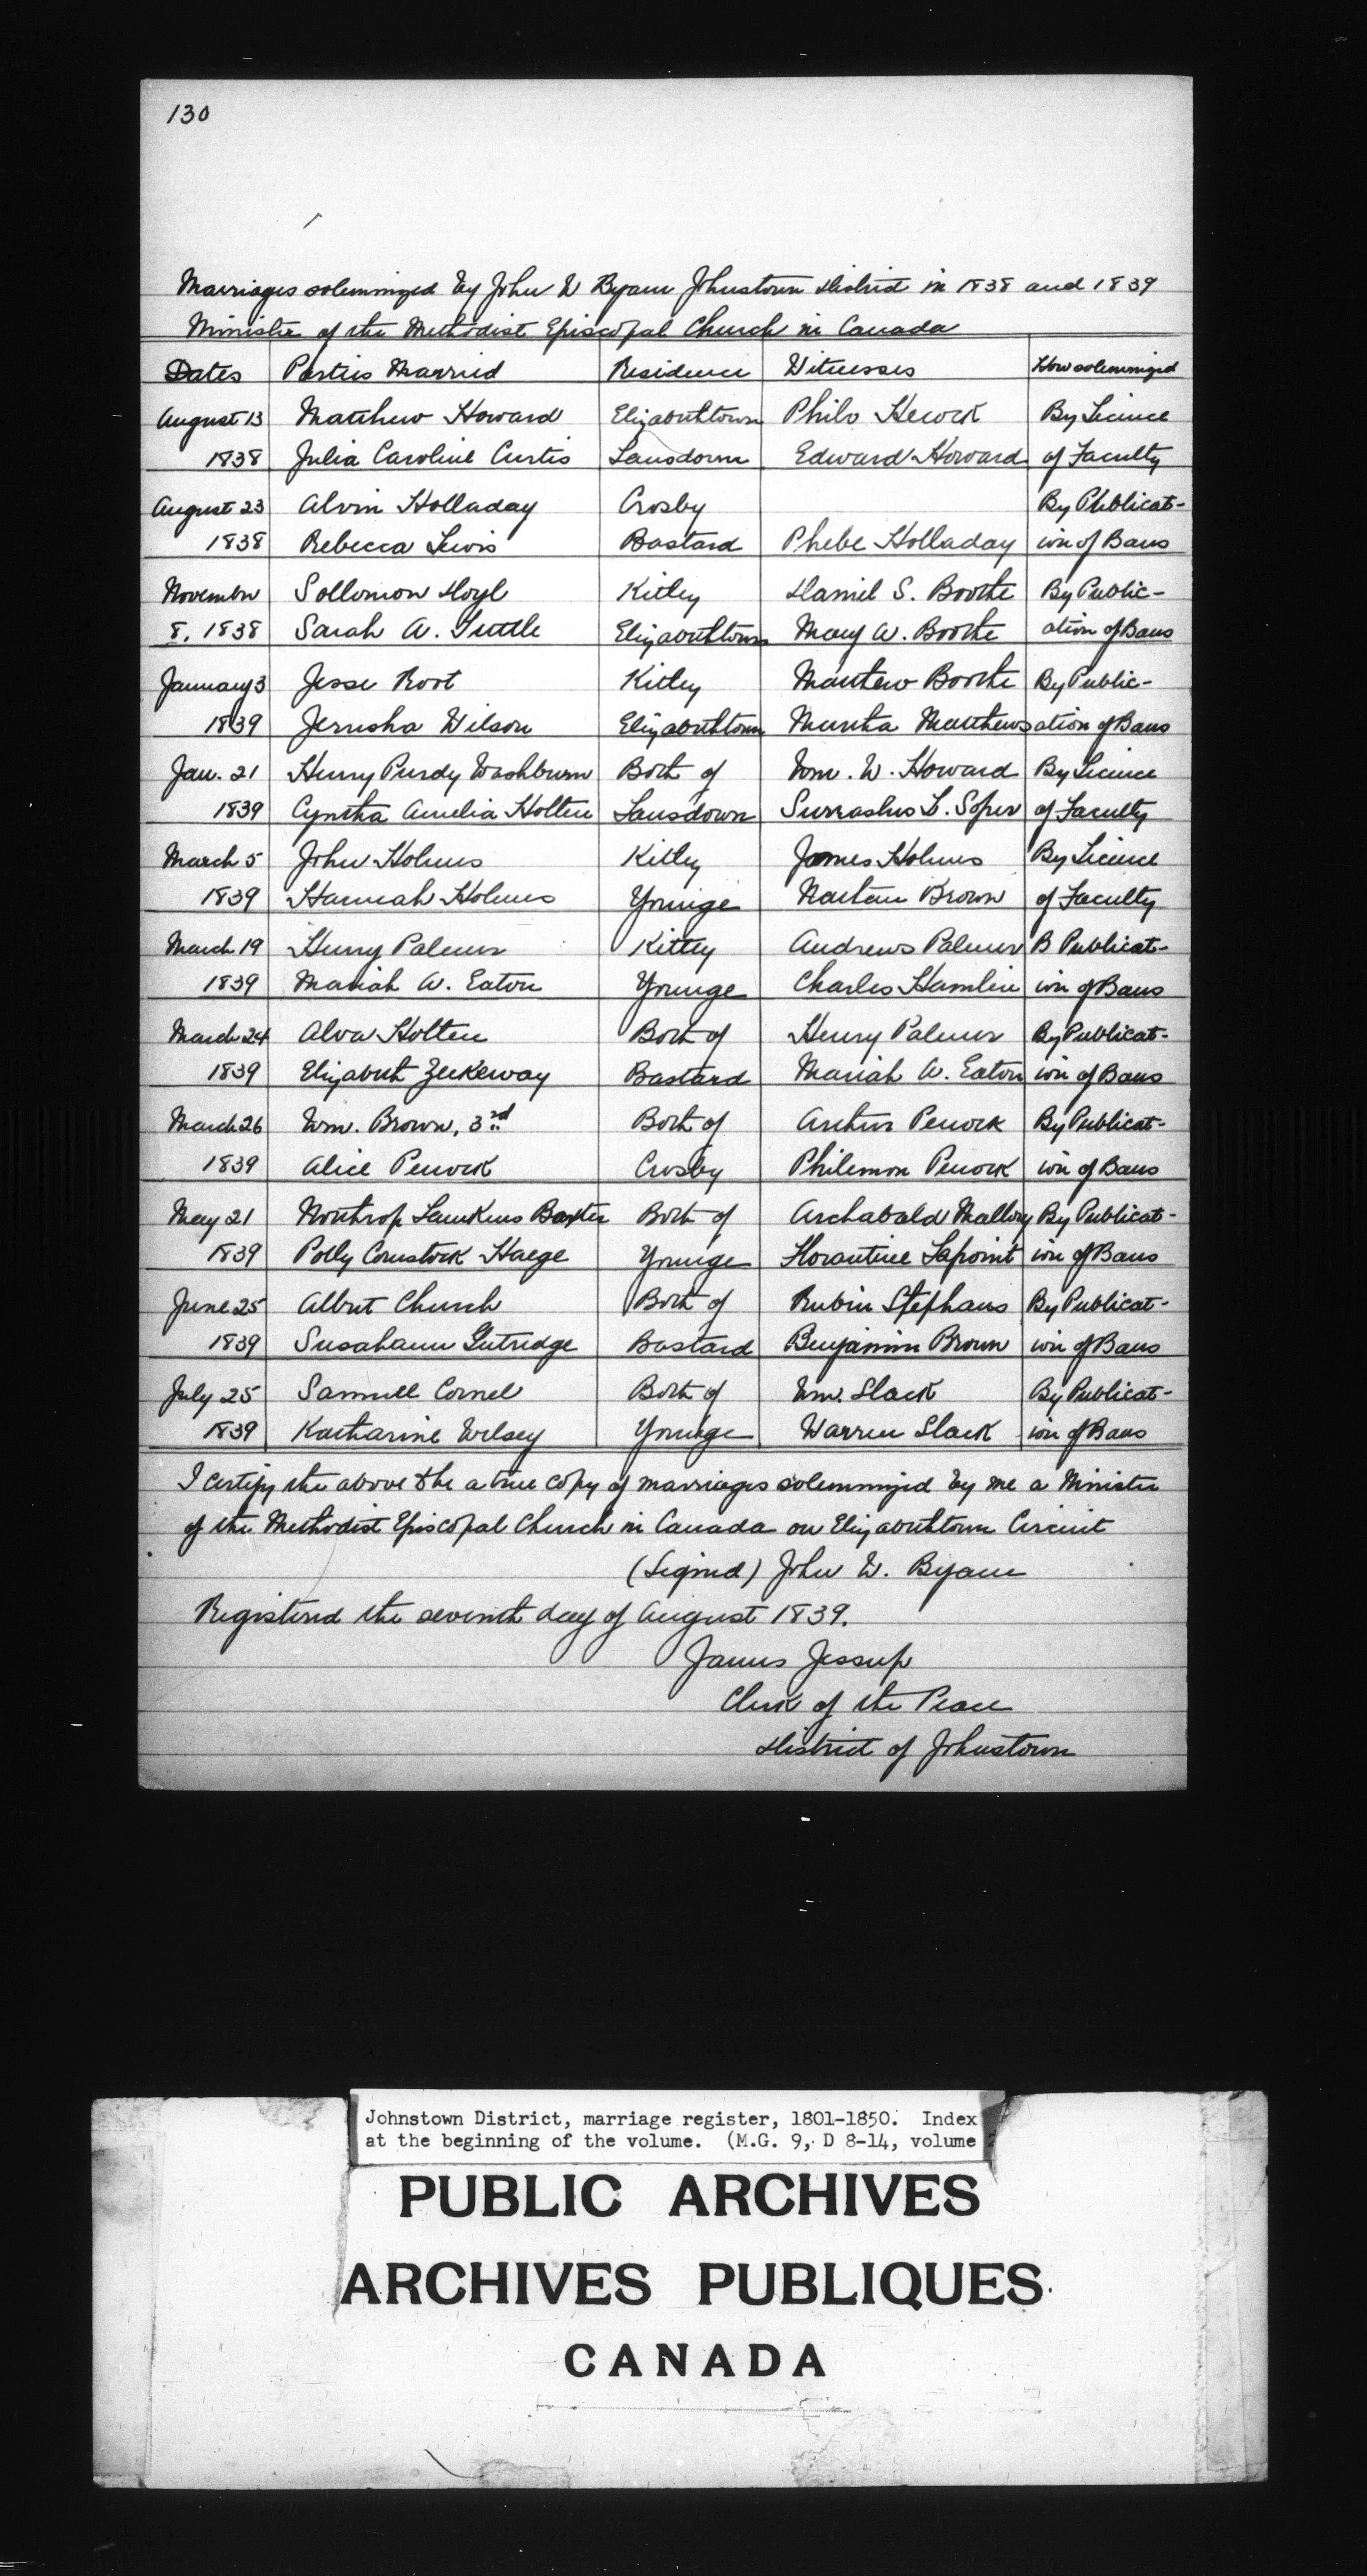 130
Marriages solemnized by John W Byam Johnstown District in 1838 and 1839
Minister of the Methodist Episcopal Church in Canada
Dates Parties Married Residence Witnesses How solemnized
August 13 Matthew Howard Elizabethtown Philo Hecock By Licince
1838 Julia Caroline Curtis Lansdown Edward Howard of Faculty
August 23 Alvin Holladay Crosby By Publicat-
1838 Rebecca Lewis Bastard Phebe Holladay ion of Bans
November Sollomon Hoyl Kitley Daniel S. Boothe By Public-
8, 1838 Sarah A. Tuttle Elizabethtown Mary A. Boothe ation of Bans
January 3 Jesse Root Kitley Mauthew Boothe By Public-
1839 Jerusha Wilson Elizabethtown Martha Matthews ation of Bans
Jan. 21 Henry Purdy Washburn Both of Wm. W. Howard By Licince
1839 Cyntha Amelia Holten Lansdown L. Soper of Faculty
March 5 John Holmes Kitley James Holmes By Licince
1839 Hannah Holmes Younge Nathan Brown of Faculty
March 19 Henry Palmer Kitley Andrews Palmer B Publicat-
1839 Mariah A. Eaton Younge Charles Hamlin ion of Bans
March 24 Alva Holten Both of Henry Palmer By Publicat-
1839 Elizabeth Bastard Mariah A. Eaton ion of Bans
March 26 Wm. Brown, 3rd Both of Arthur Pecock By Publicat-
1839 Alice Pecock Crosby Philemon Pecock ion of Bans
May 21 Northrop Lamkins Baxter Both of Archabald Mallory By Publicat-
1839 Polly Comstock Haege Younge Florantine Lapoint ion of Bans
June 25 Albert Church Both of Rubin Stephans By Publicat-
1839 Susahann Gutridge Bastard Benjamin Brown ion of Bans
July 25 Samuel Cornel Both of Wm. Slack By Publicat-
1839 Katharine Wilsey Younge Warren Slack ion of Bans
I certify the above to be a true copy of marriages solemnized by me a Minister
of the Methodist Episcopal Church in Canada on Elizabethtown Circuit
(Signed) John W. Byam
Registered the seventh day of August 1839.
James Jessup
Clerk of the Peace
District of Johnstown
Johnstown District, marriage register, 1801-1850. Index
at the beginning of the volume. (M.G. 9, D 8-14, volume
PUBLIC ARCHIVES
ARCHIVES PUBLIQUES
CANADA